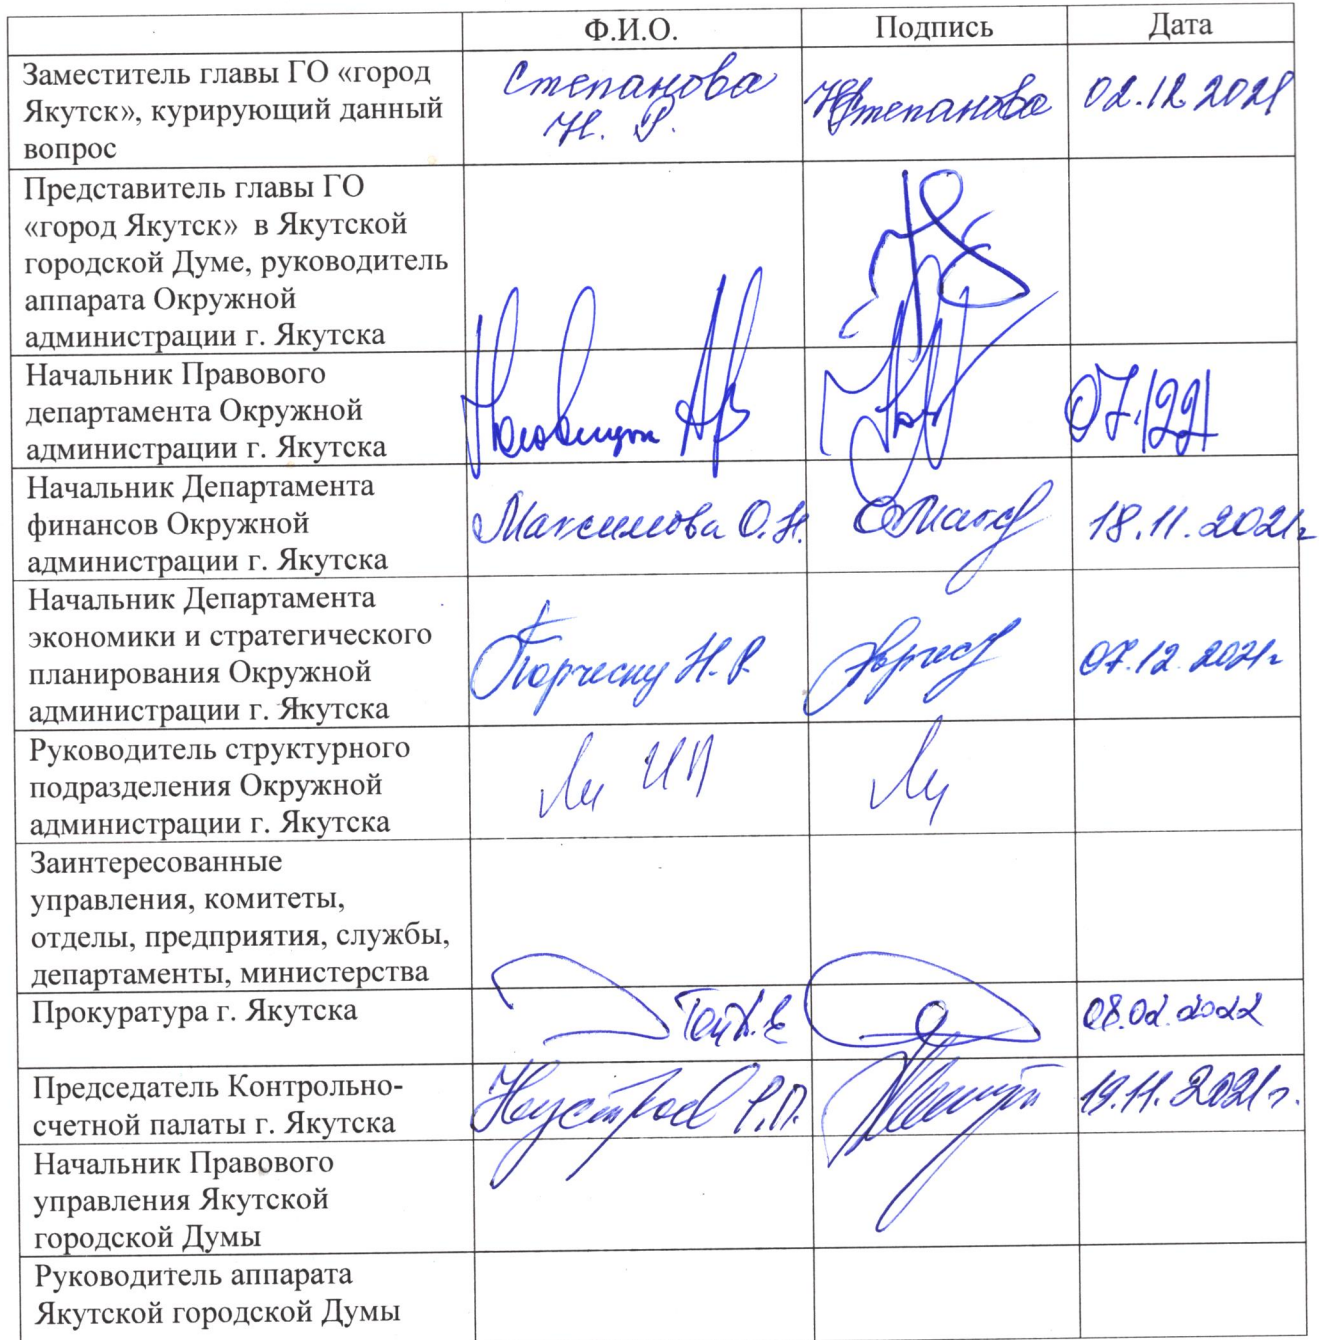 Ф.И.О. Подпись Дата
Заместитель главы ГО «город
Якутск», курирующий данный
вопрос
Степанова
Н. Р.
Степанова
02.12.2021
Представитель главы ГО
«город Якутск» в Якутской
городской Думе, руководитель
аппарата Окружной
администрации г. Якутска
Начальник Правового
департамента Окружной
администрации г. Якутска
Начальник Департамента
финансов Окружной
администрации г. Якутска
Максимова О.Н.
18.11.2021г
Начальник Департамента
экономики и стратегического
планирования Окружной
администрации г. Якутска
Н.Р.
07.12.2021г
Руководитель структурного
подразделения Окружной
администрации г. Якутска
Ли ИП
Ли
Заинтересованные
управления, комитеты,
отделы, предприятия, службы,
департаменты, министерства
Прокуратура г. Якутска
08.02.2022
Председатель Контрольно-
счетной палаты г. Якутска
Неустроев Р.П.
19.11.2021г.
Начальник Правового
управления Якутской
городской Думы
Руководитель аппарата
Якутской городской Думы